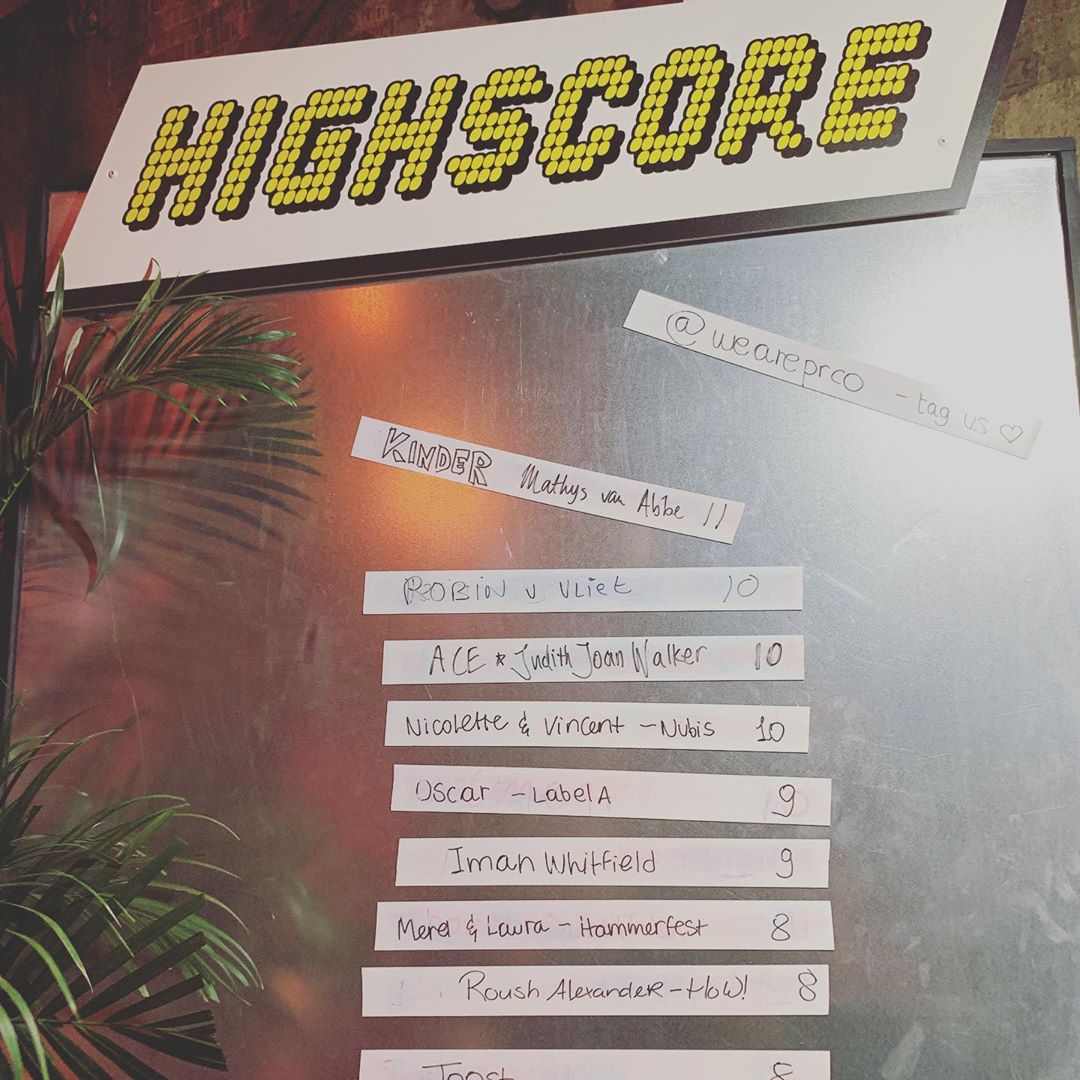 HIGHSCORE
@weareprco - tag us ♡
KINDER Mathys van Abbe 11
ROBIN v VLiet 10
ACE * Judith Joan Walker 10
Nicolette & Vincent - Nubis 10
Oscar - Label A 9
Iman Whitfield 9
Merel & Laura - Hammerfest 8
Roush Alexander - How! 8
Joost 8